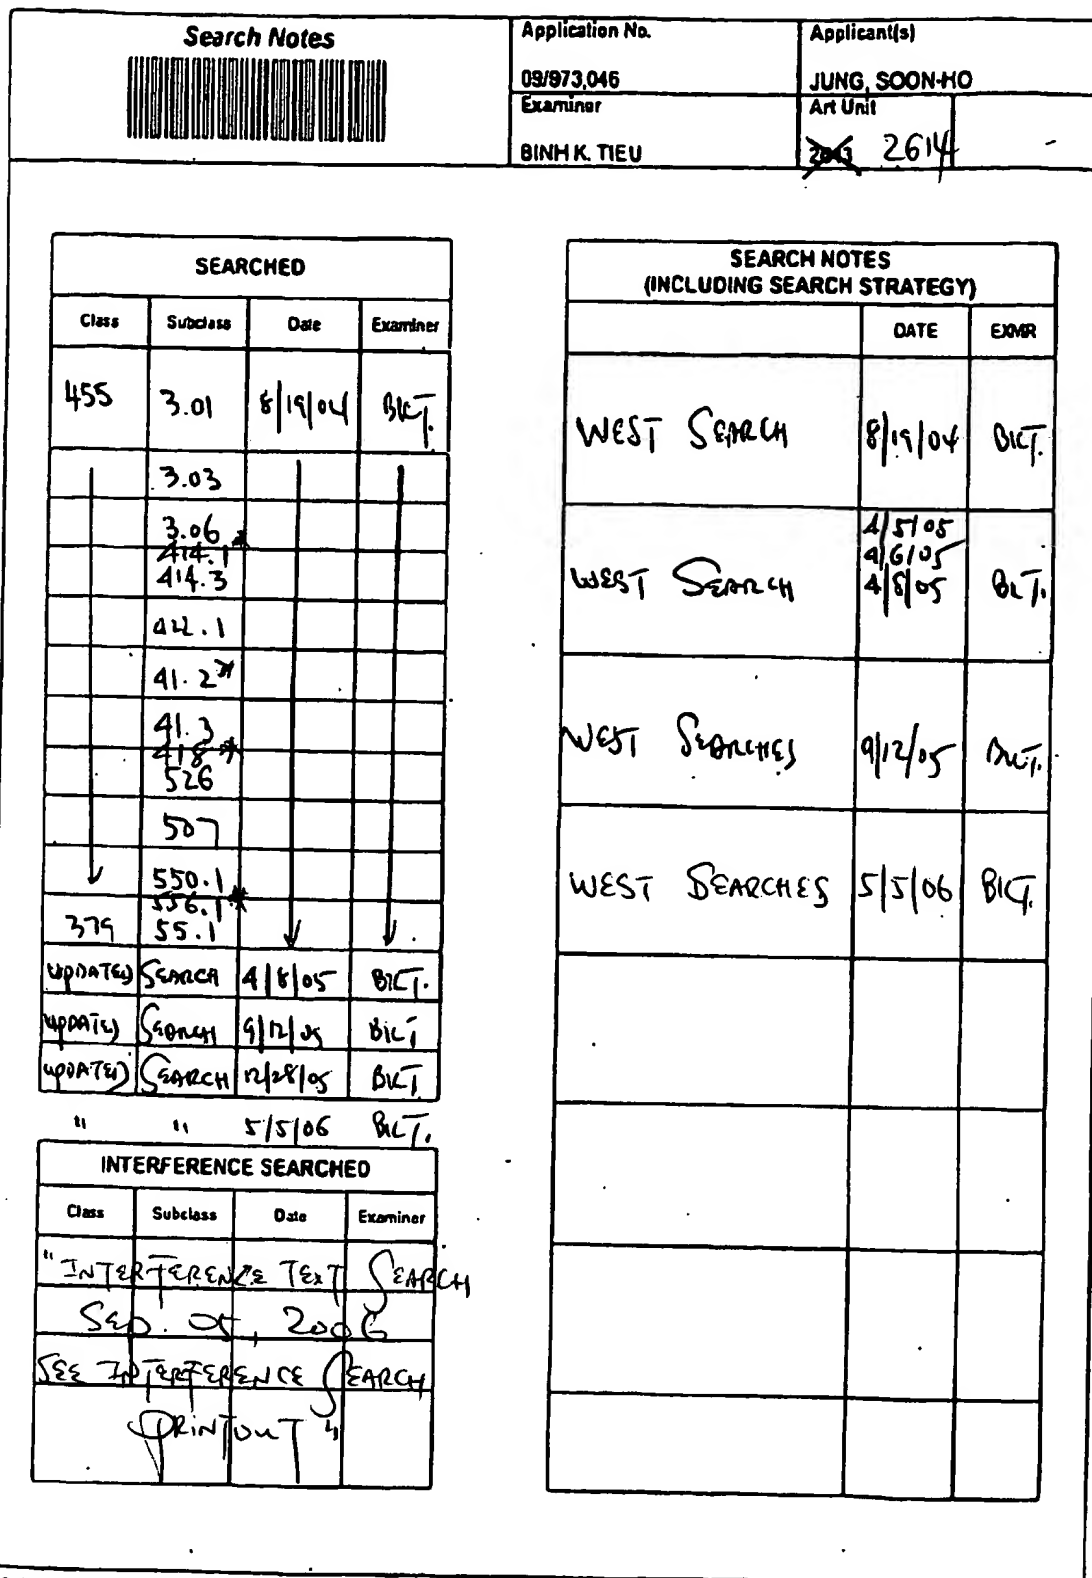 Search Notes
Application No.
Applicant(s)
09/973,046
JUNG, SOON-HO
Examiner
Art Unit
BINH K. TIEU
2643 2614
SEARCHED
Class Subclass Date Examiner
455 3.01 8/19/04 BKT.
3.03
3.06
414.1*
414.3
422.1
41.2*
41.3
418*
526
507
550.1
556.1*
379 55.1
UPDATED SEARCH 4/8/05 BKT.
UPDATED SEARCH 9/12/05 BKT
UPDATED SEARCH 12/28/05 BKT
" " 5/5/06 BKT.
INTERFERENCE SEARCHED
Class Subclass Date Examiner
"INTERFERENCE TEXT SEARCH
SEP. 05, 2006
SEE INTERFERENCE SEARCH
PRINTOUT"
SEARCH NOTES
(INCLUDING SEARCH STRATEGY)
DATE EXMR
WEST SEARCH 8/19/04 BKT.
4/5/05
4/6/05
WEST SEARCH 4/8/05 BKT.
WEST SEARCHES 9/12/05 BKT.
WEST SEARCHES 5/5/06 BKT.